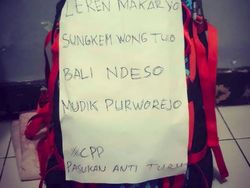 LEREN MAKARYO
SUNGKEM WONG TUO
BALI NDESO
MUDIK PURWOREJO
CPP
PASUKAN ANTI